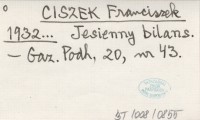 CISZEK Franciszek
1932... Jesienny bilans.
– Gaz. Podh, 20, nr 43.
BT/008/0855